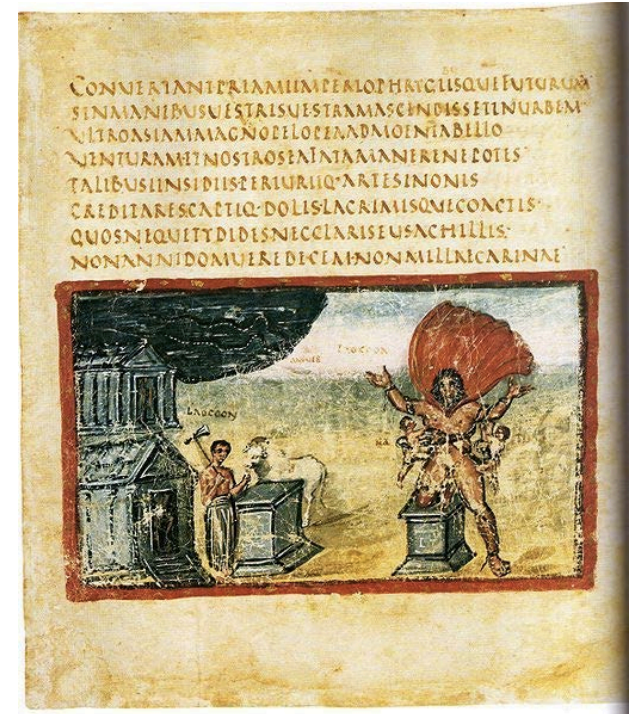 CONVERTANTPRIAMIIMPERIOPHRYGIISQUEFUTURUM
SINMANIBUSUESTRISUESTRAMASCENDISSETINURBEM
VLTROASIAMMAGNOPELOPEAADMOENIABELLO
VENTURAMETNOSTROSEAFATAMANERENEPOTES
TALIBUSINSIDIISPERIURIIQ·ARTESINONIS
CREDITARESCAPTIQ·DOLISLACRIMISQUECOACTIS·
QUOSNEQUETYDIDESNECCLARISEUSACHILLIS·
NONANNIDOMUEREDECEMNONMILLAECARINAE
LAOCOON
LAOCOON